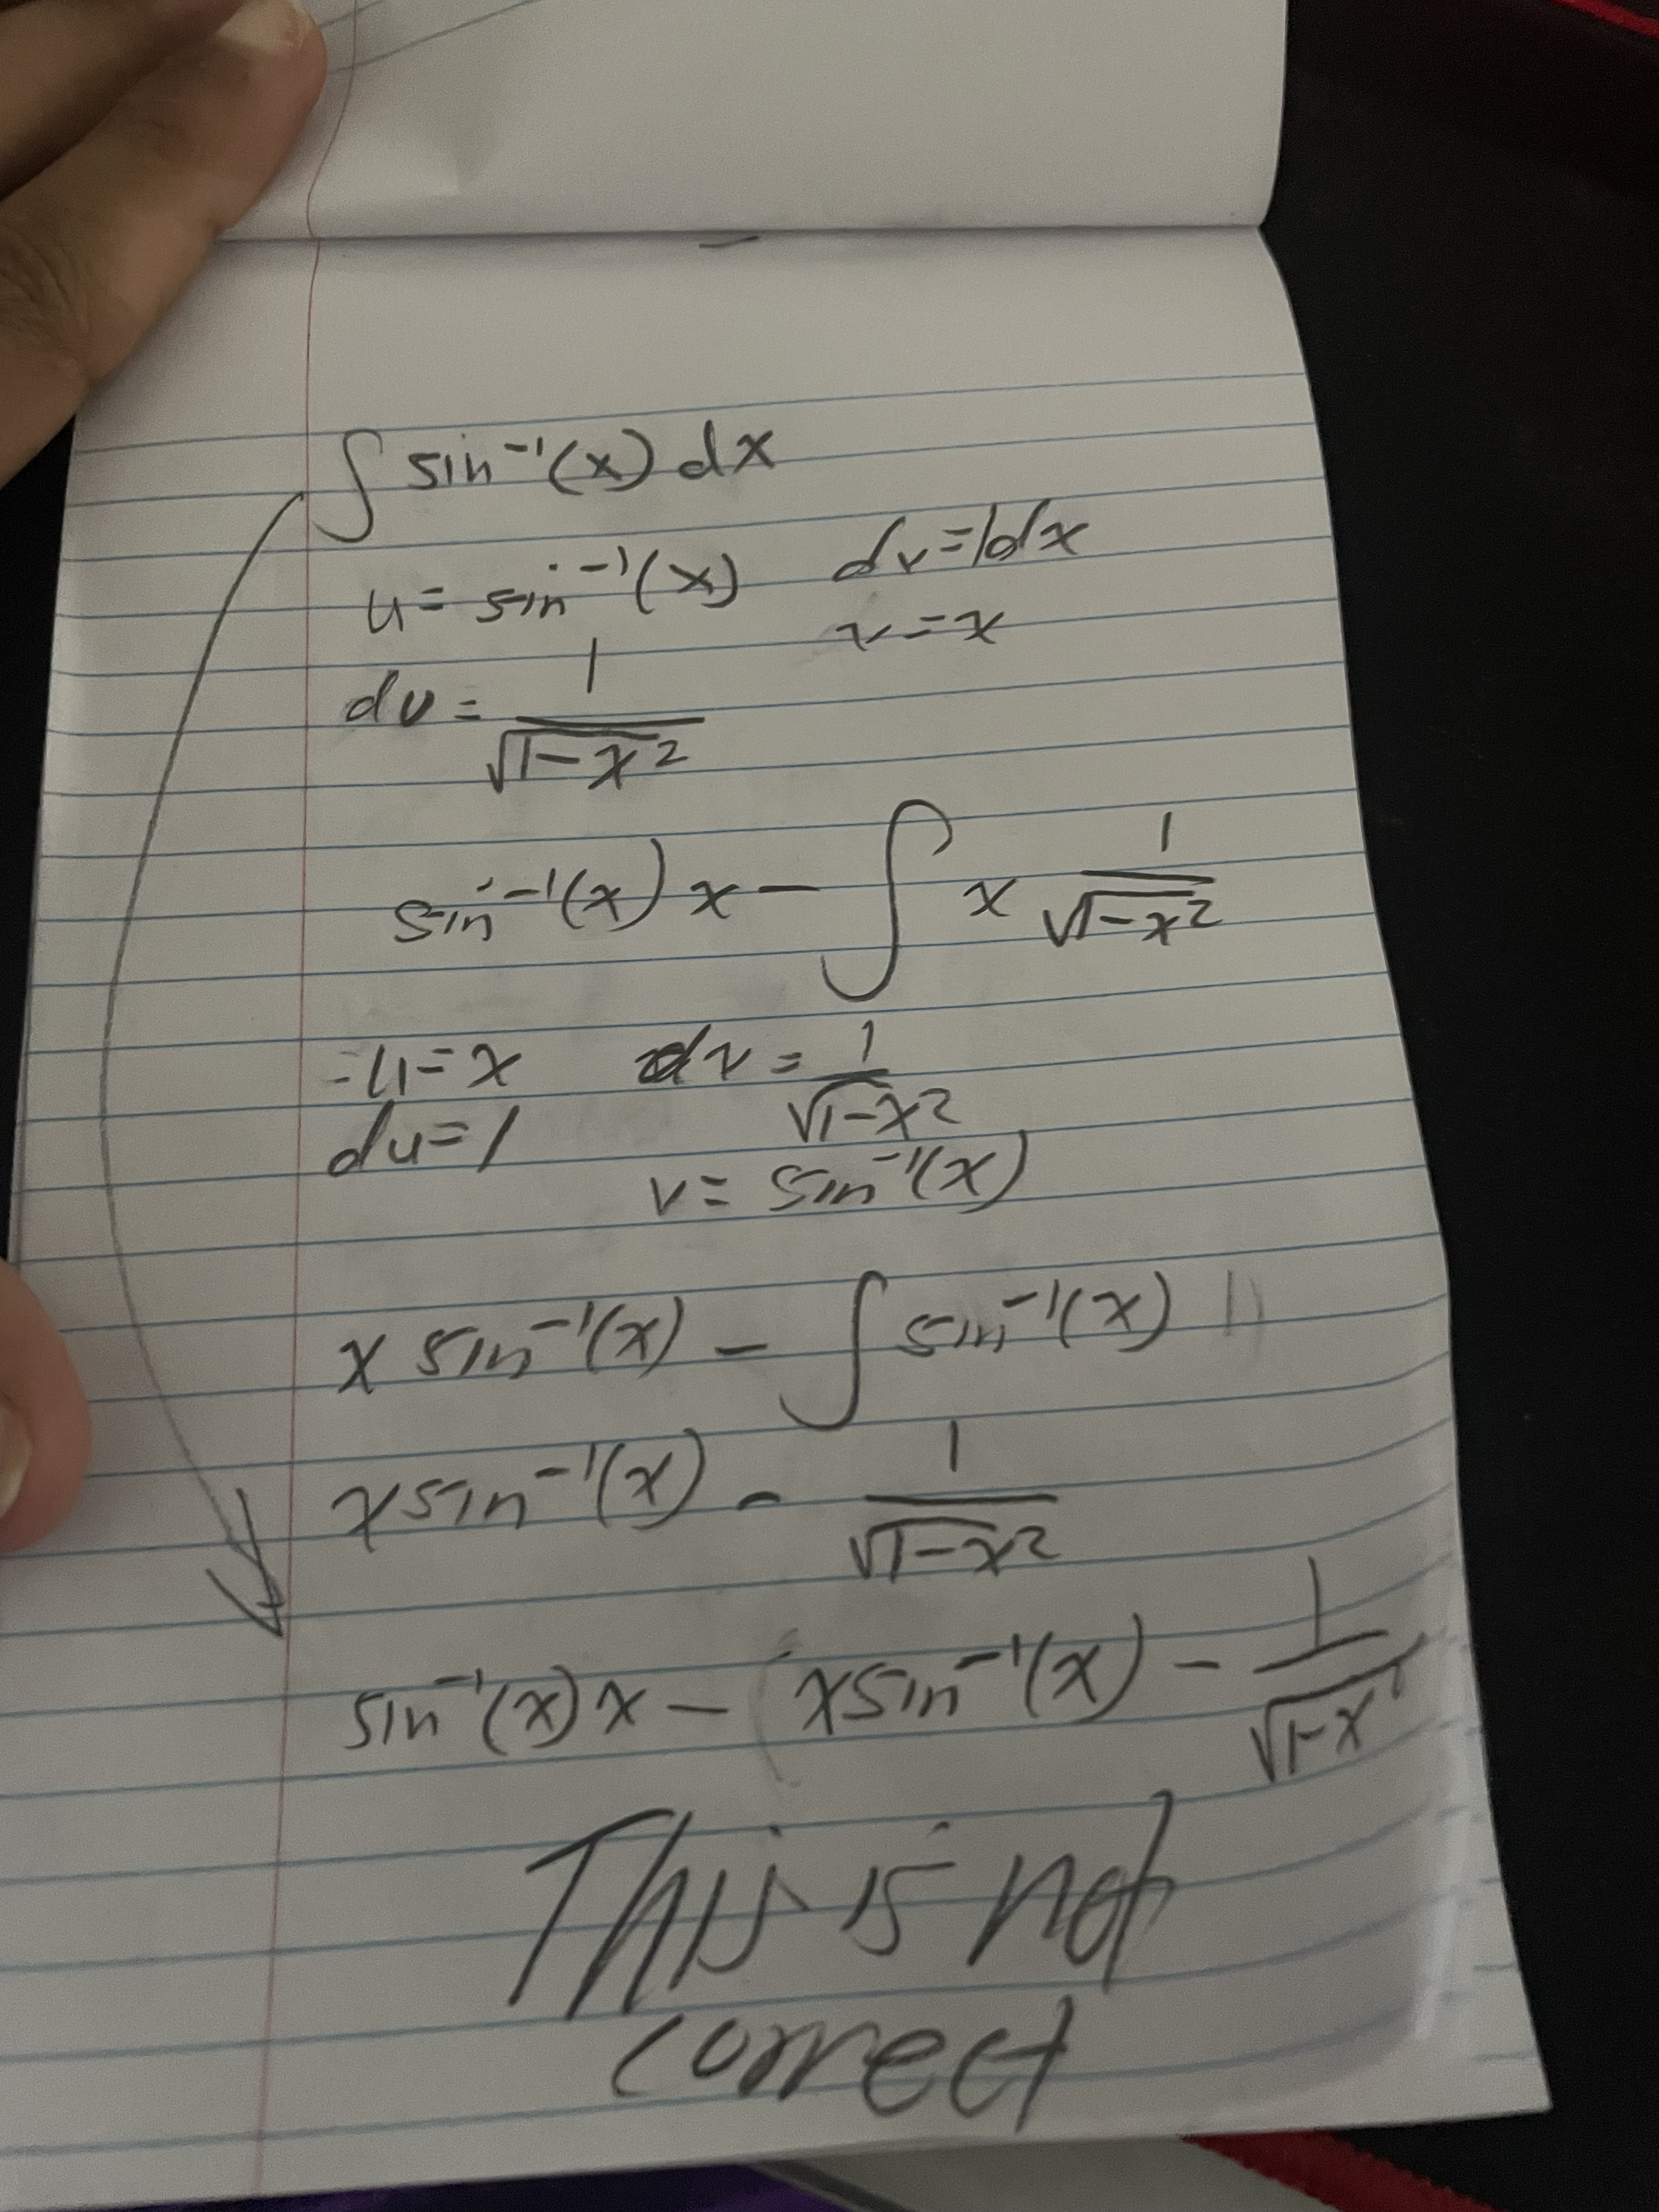 ∫ sin⁻¹(x) dx
u = sin⁻¹(x) dv = 1dx
du = 1/√(1-x²) v = x
sin⁻¹(x) x - ∫ x 1/√(1-x²)
- u = x dv = 1/√(1-x²)
du = 1 v = sin⁻¹(x)
x sin⁻¹(x) - ∫ sin⁻¹(x)
x sin⁻¹(x) - 1/√(1-x²)
sin⁻¹(x) x - (x sin⁻¹(x) - 1/√(1-x²)
This is not
correct